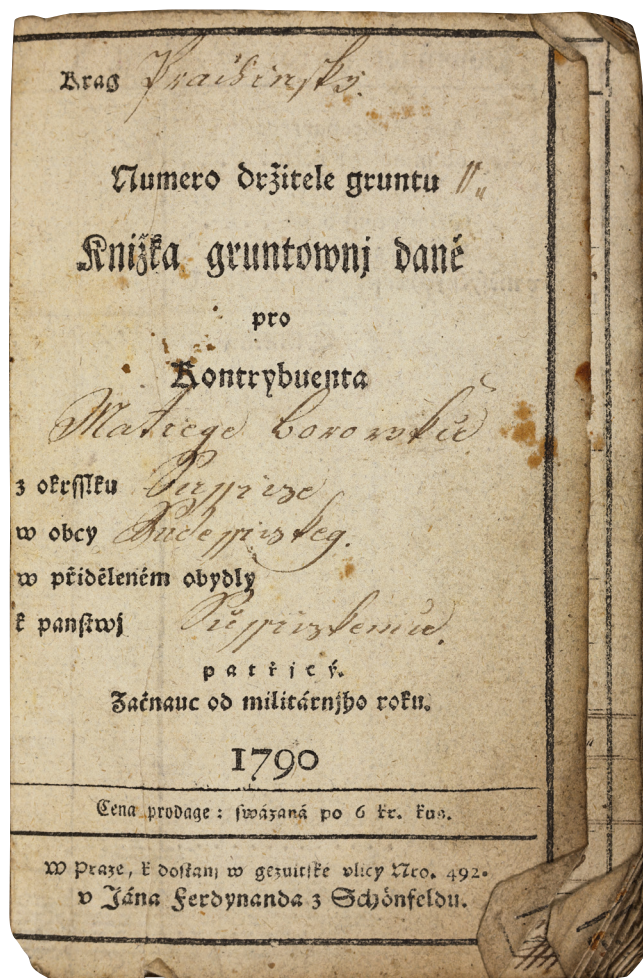 Krag Prachinsky.
Numero držitele gruntu
Knižka gruntownj daně
pro
Kontrybuenta
Matiege Borowků
z okrsslku
w obcy
w přiděleném obydlj
k panstwj
patřjcý.
Začnauc od militárnjho roku.
1790
Cena prodage: swázaná po 6 kr. kus.
W Praze, k dostanj w gezuitské vlicy Nro. 492.
v Jána Ferdynanda z Schönfeldu.